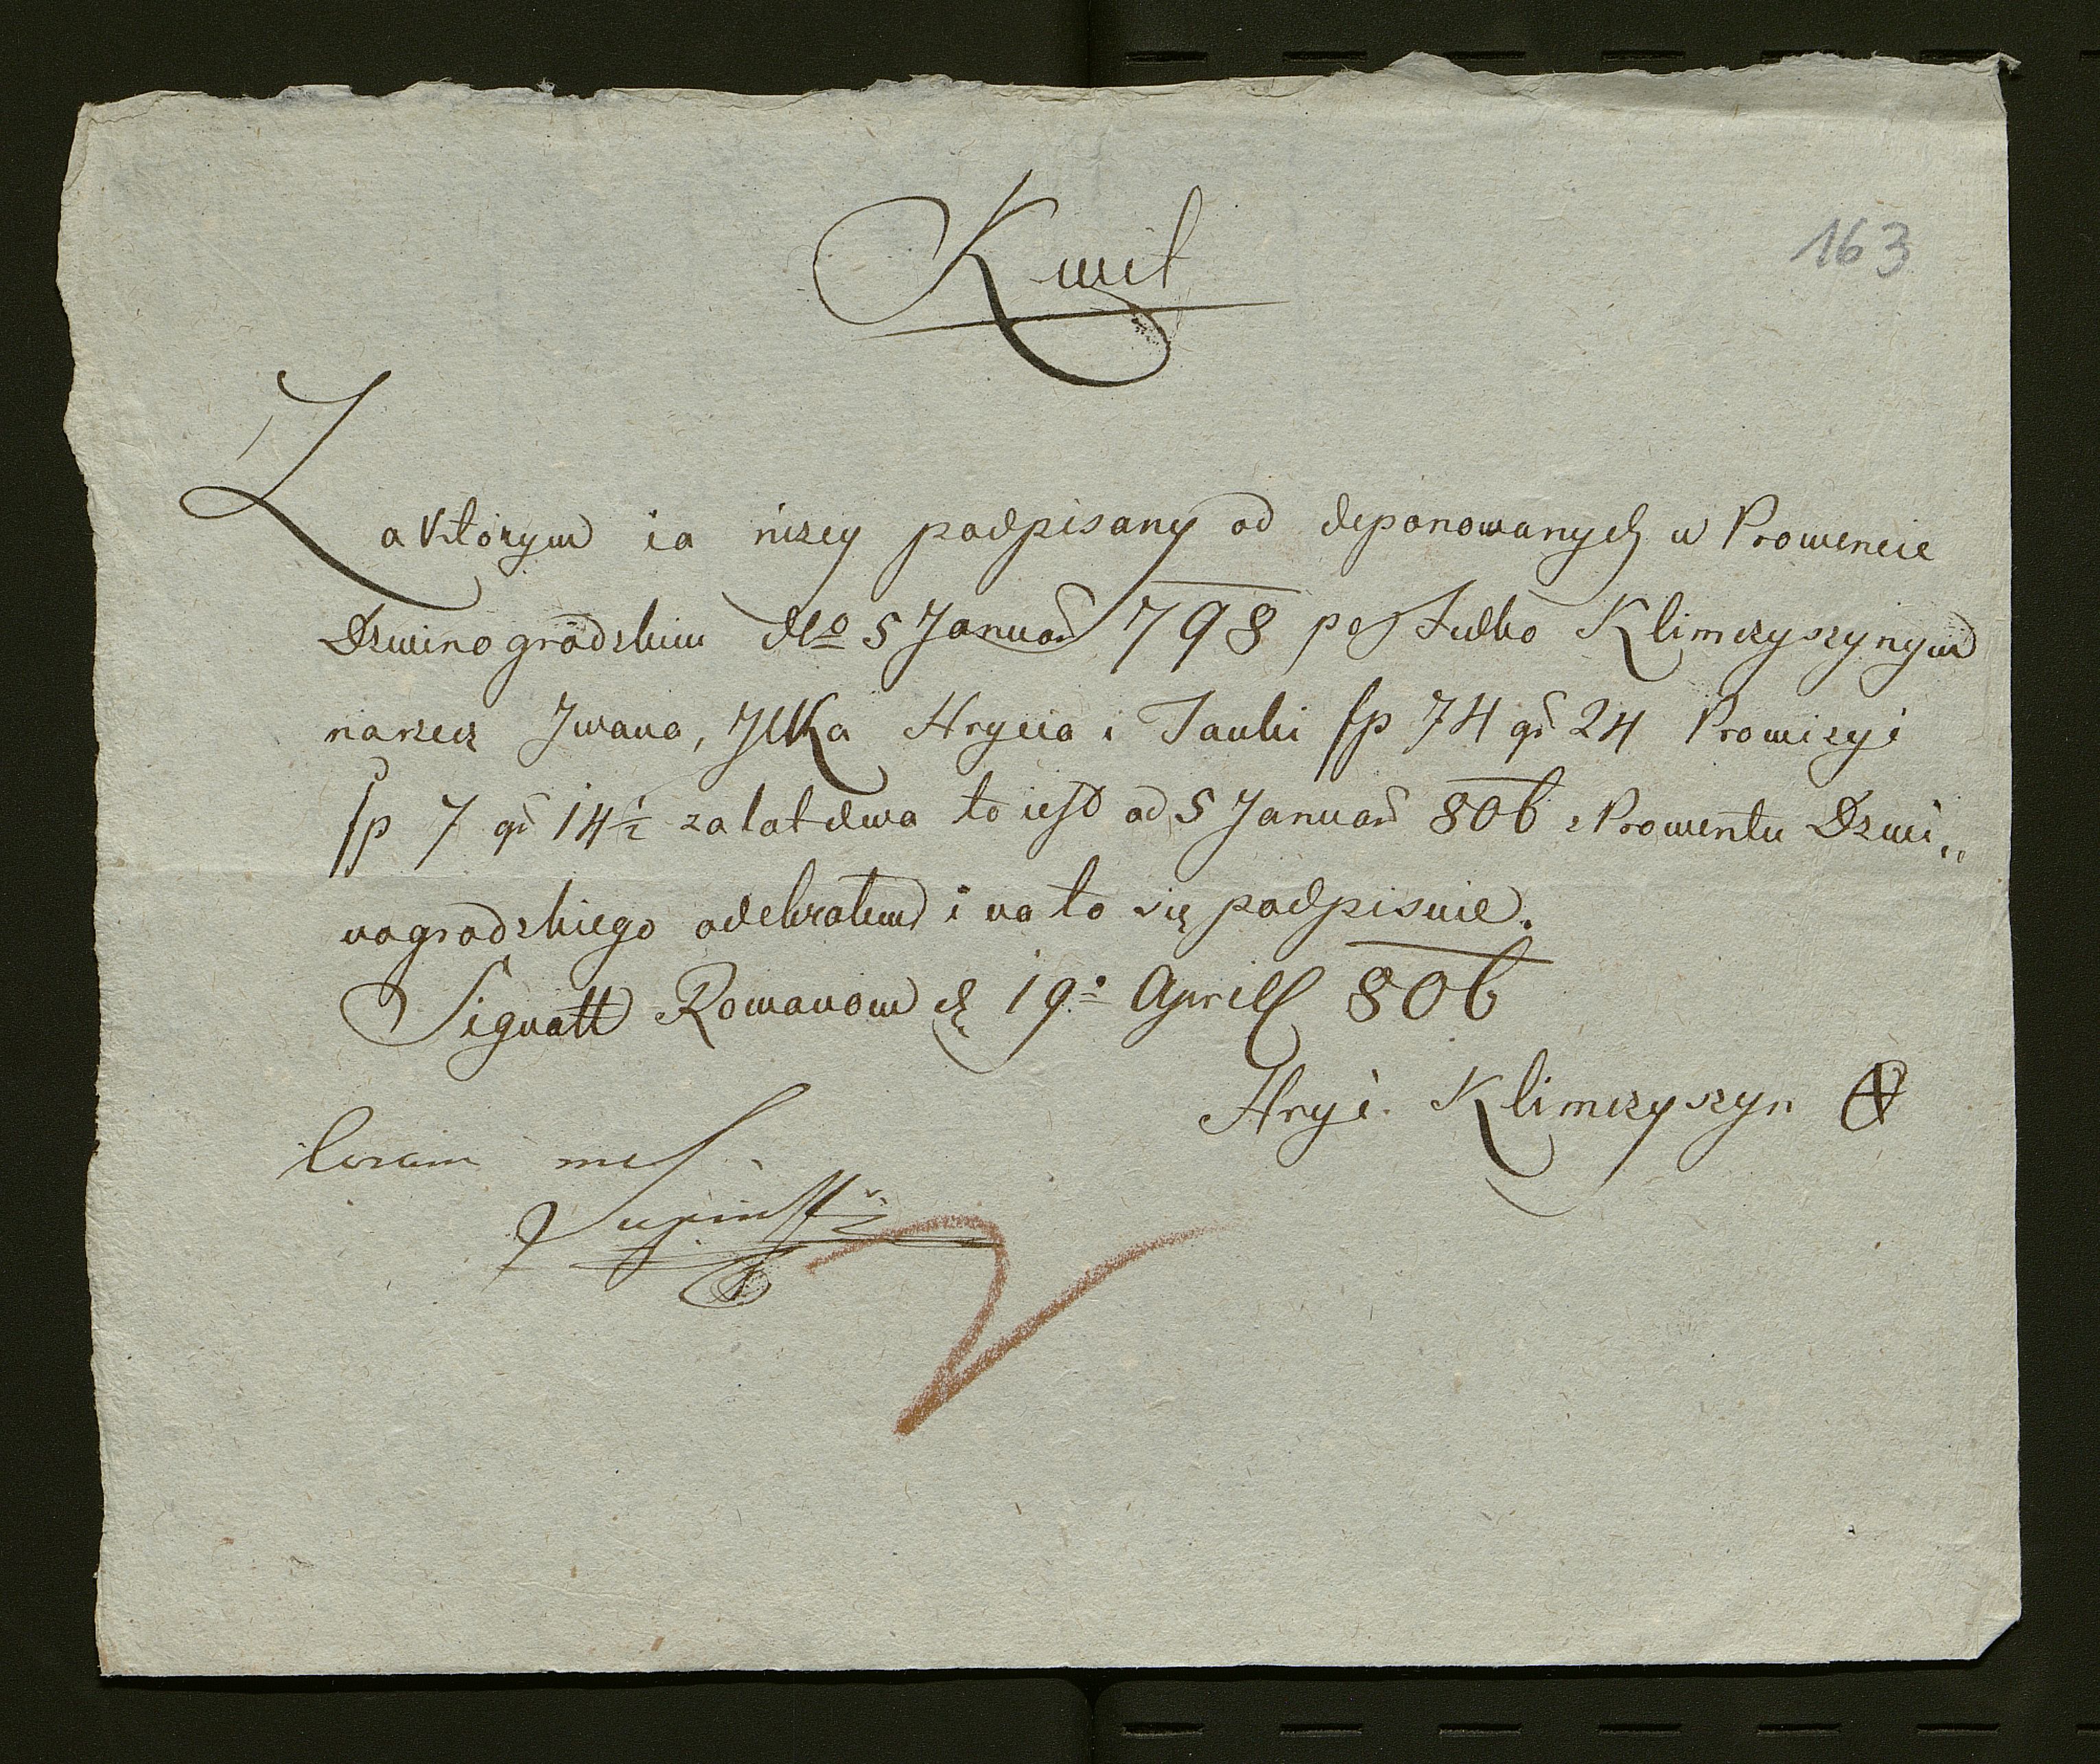 Kwit
163
Za którym ia niżey podpisany od deponowanych w Prowencie
Dzwinogrodzkim dto 5 Januar 798 po Fedko Klimczyszynym
narzecz Jwana, Jlka Hrycia i Pauki fp 74 gr 24 Prowizyi
fp 7 gr 14½ za lat dwa to iest od 5 Januar 806 z Prowentu Dzwi„
nogrodzkiego odebrałem i na to się podpisuię.
Signatt Romanow d 19º Aprill 806
Hryć Klimczyszyn
Coram me